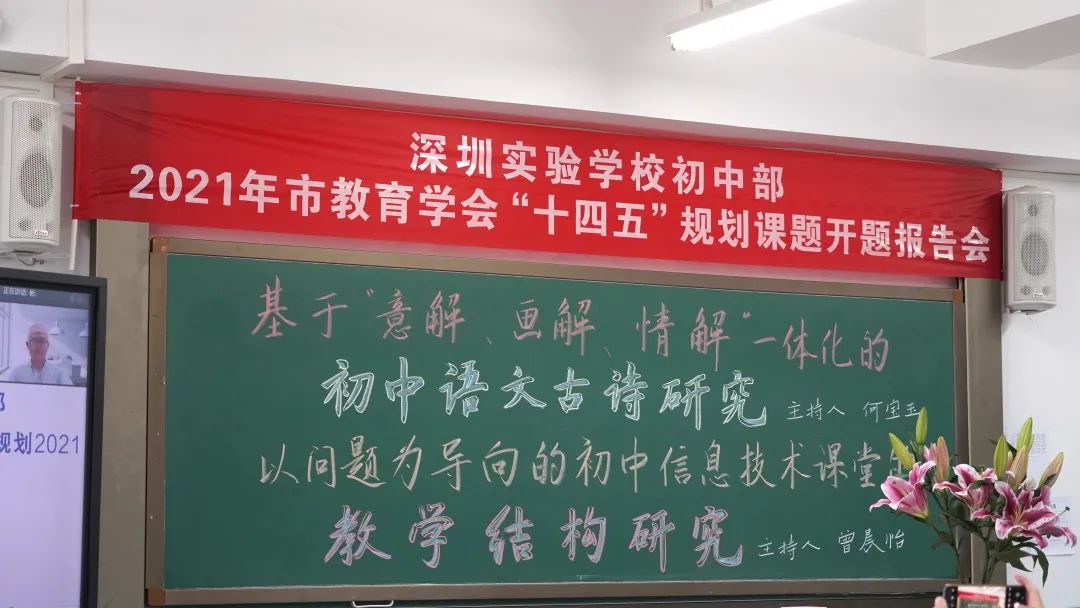 深圳实验学校初中部
2021年市教育学会“十四五”规划课题开题报告会
基于“意解、画解、情解”一体化的
初中语文古诗研究 主持人 何宝玉
以问题为导向的初中信息技术课堂
教学结构研究 主持人 曾晨怡
正在讲话:
部
规划2021